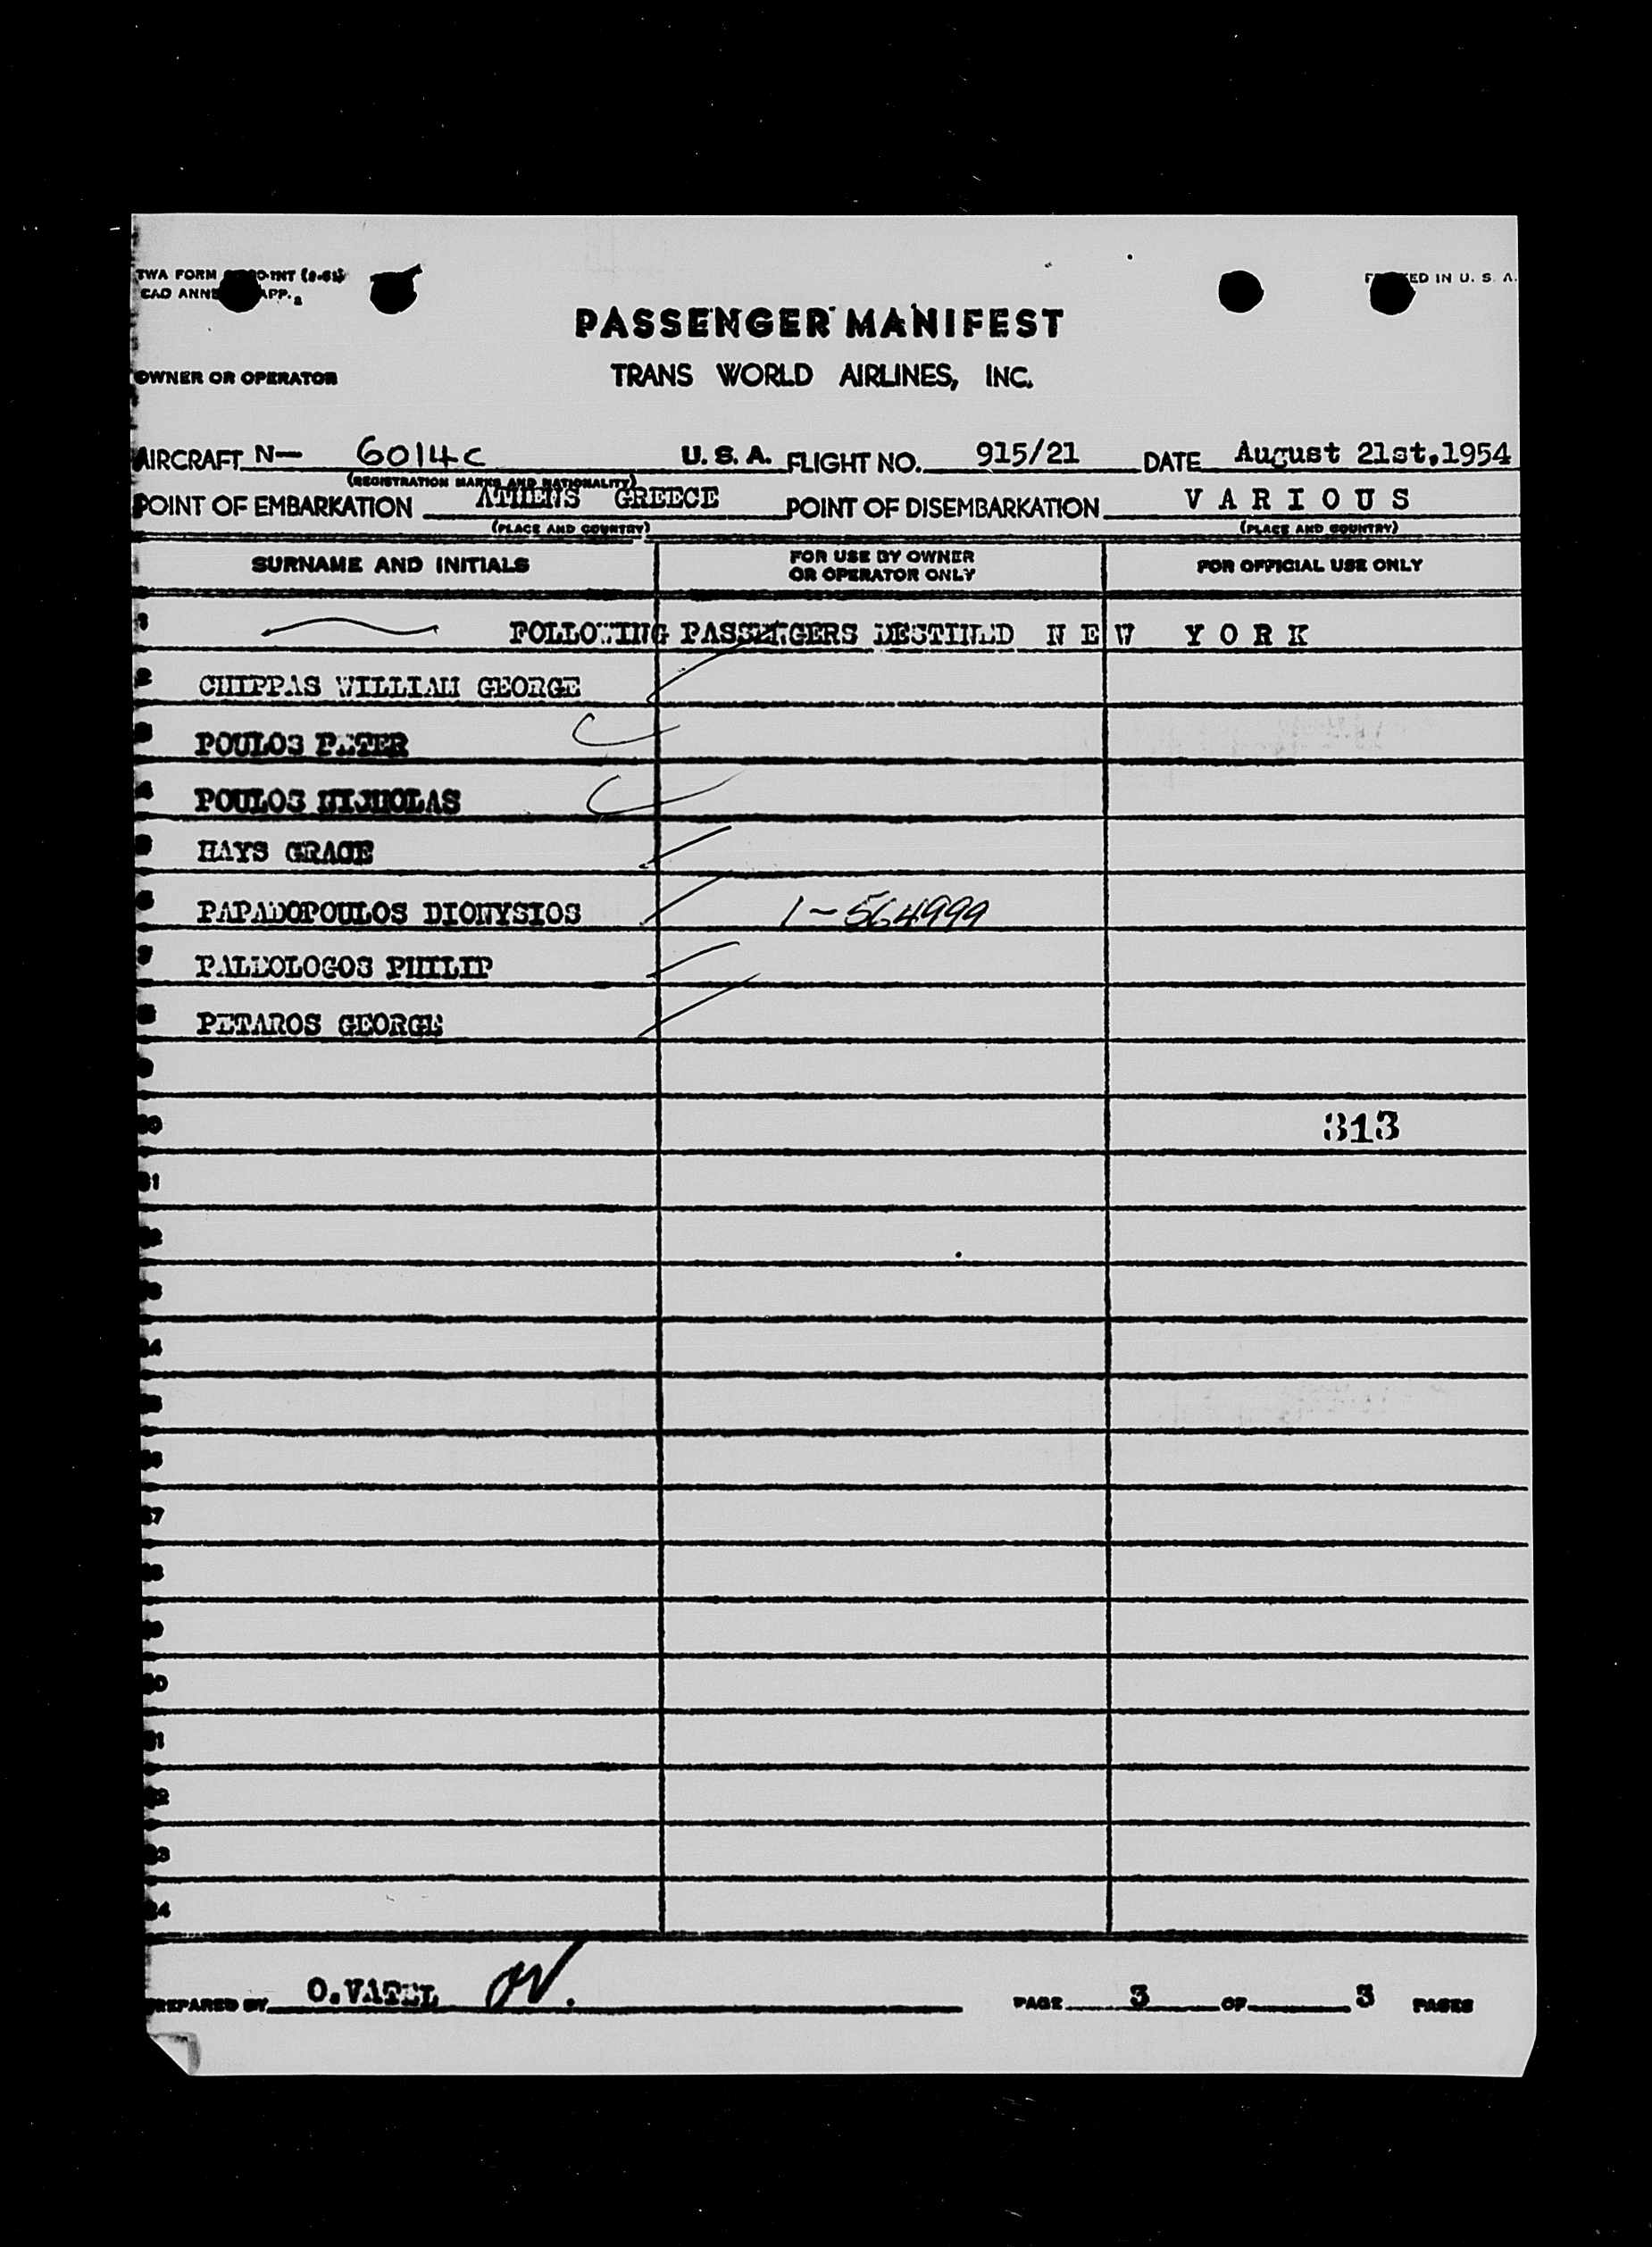 TWA FORM INT (2-51)
CAO ANNE APP. 2
ED IN U. S. A.
PASSENGER MANIFEST
OWNER OR OPERATOR TRANS WORLD AIRLINES, INC.
AIRCRAFT N— 6014C U. S. A. FLIGHT NO. 915/21 DATE August 21st,1954
(REGISTRATION MARKS AND NATIONALITY)
POINT OF EMBARKATION ATHENS GREECE POINT OF DISEMBARKATION V A R I O U S
(PLACE AND COUNTRY) (PLACE AND COUNTRY)
SURNAME AND INITIALS FOR USE BY OWNER OR OPERATOR ONLY FOR OFFICIAL USE ONLY
1 FOLLOWING PASSENGERS DESTINED N E W Y O R K
2 CHIPPAS WILLIAM GEORGE
3 POULOS PETER
4 POULOS NICHOLAS
5 HAYS GRACE
6 PAPADOPOULOS DIONYSIOS 1-564999
7 PALEOLOGOS PHILIP
8 PETAROS GEORGE
9
10 313
11
12
13
14
15
16
17
18
19
20
21
22
23
24
PREPARED BY O.VATEL OV. PAGE 3 OF 3 PAGES